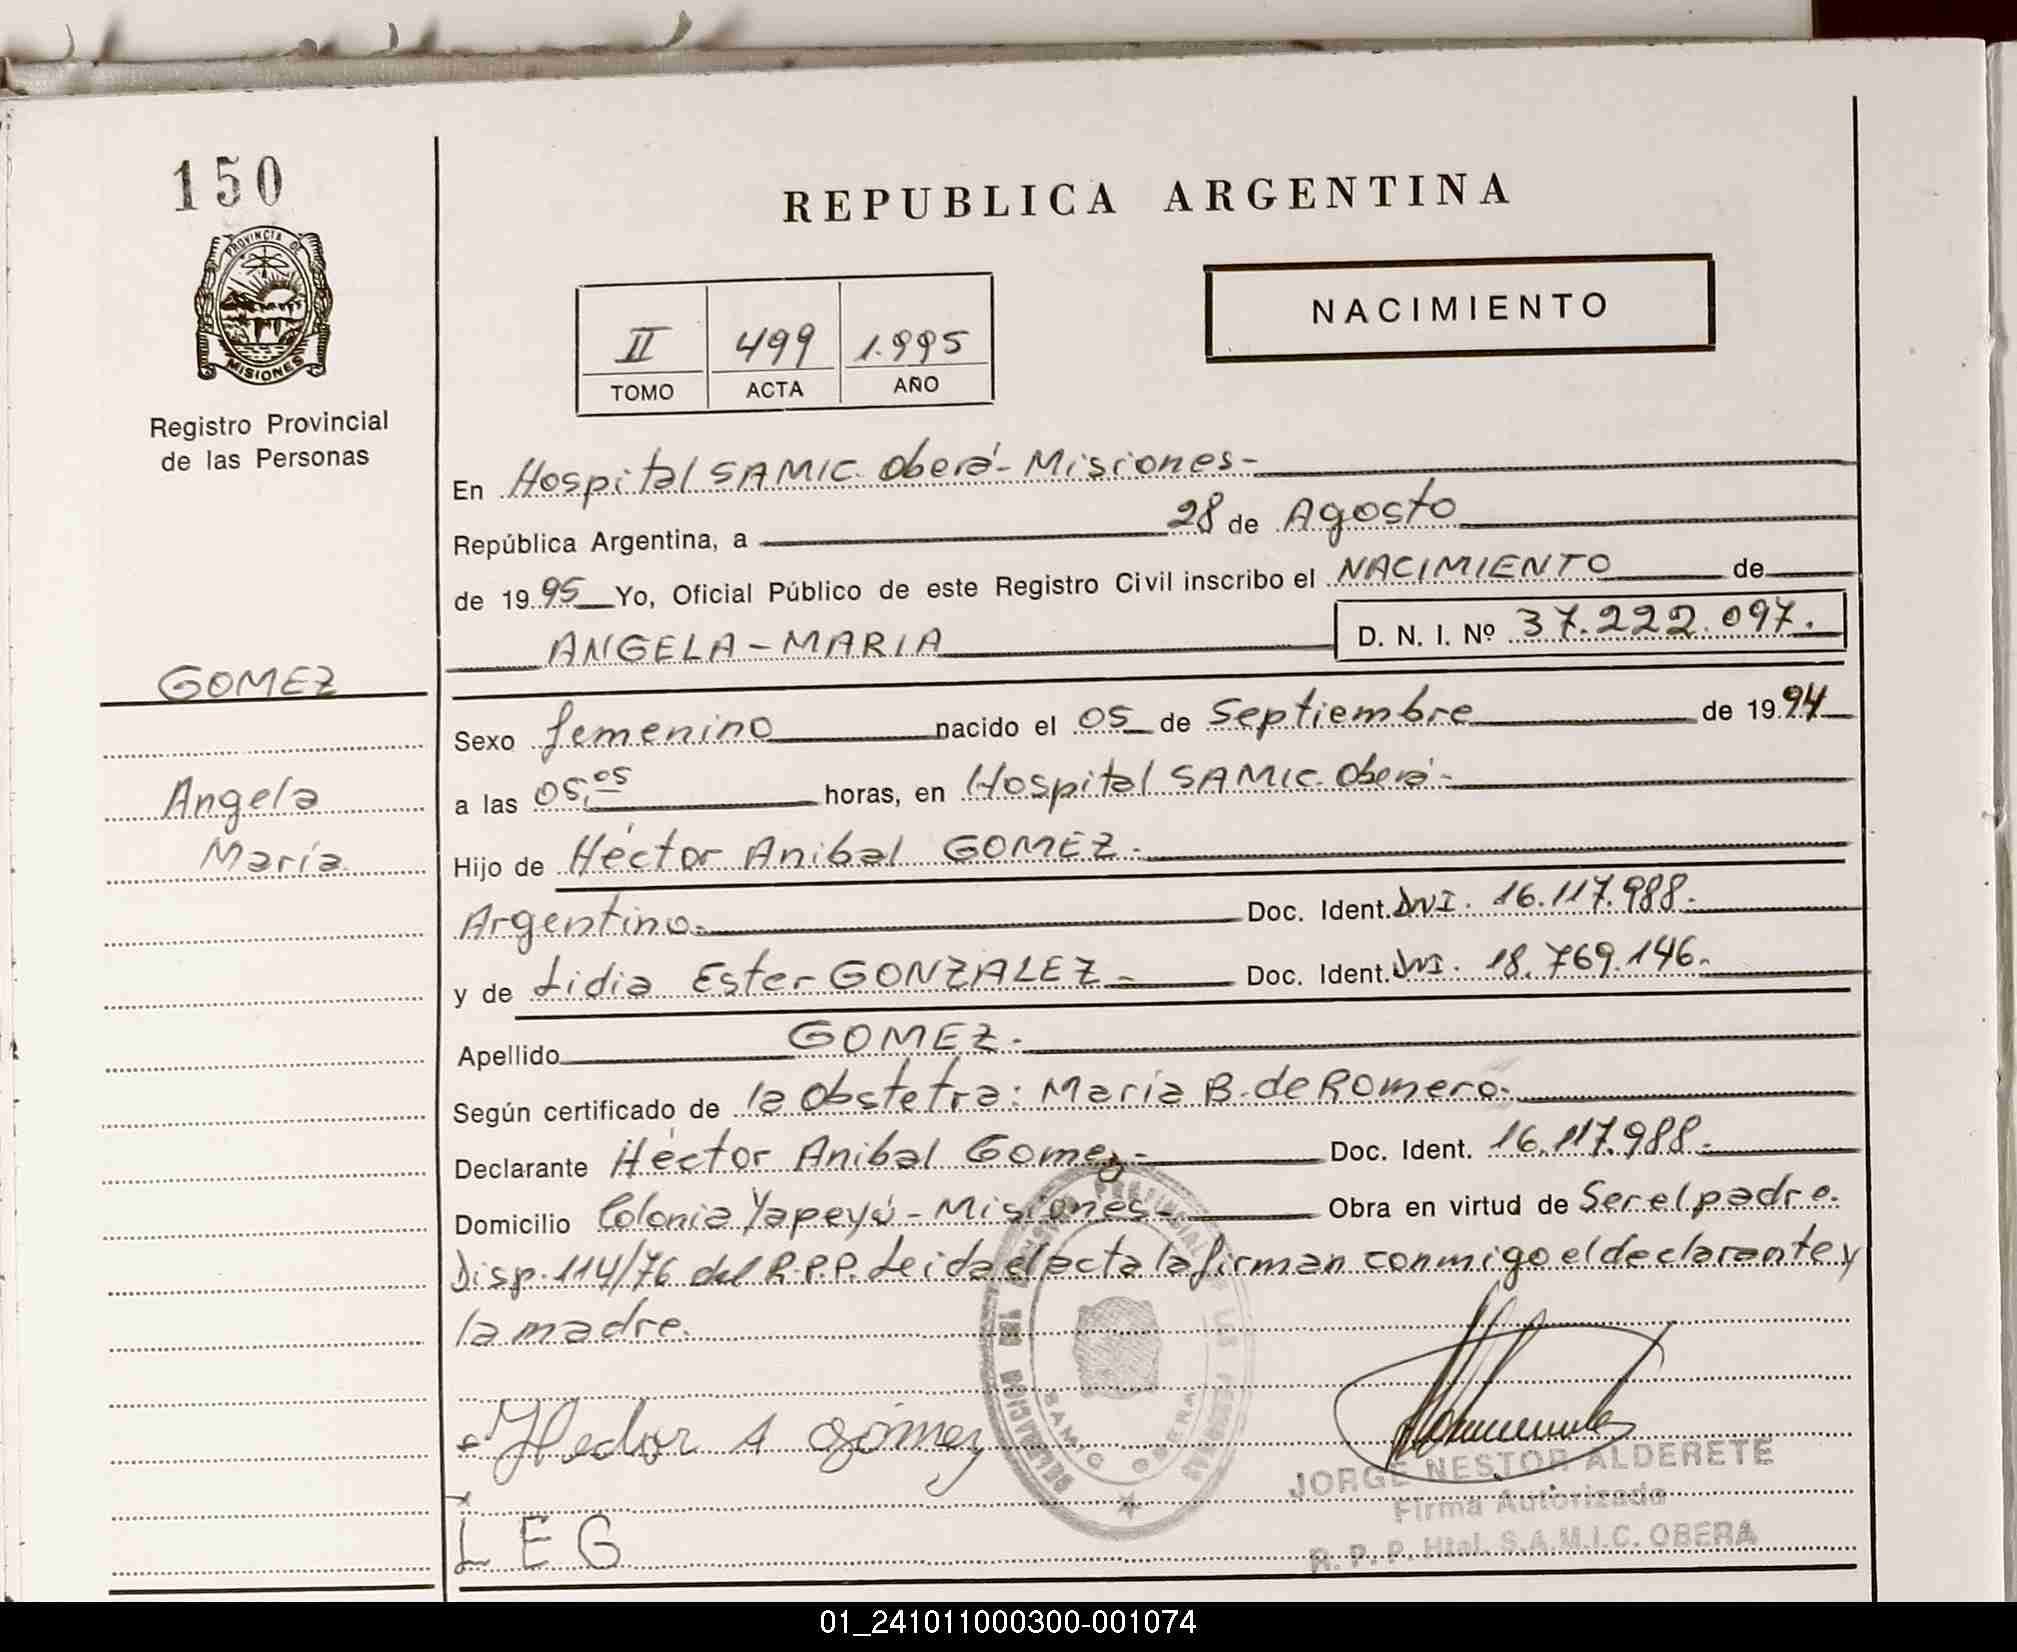 150
PROVINCIA DE
MISIONES
Registro Provincial
de las Personas
REPUBLICA ARGENTINA
NACIMIENTO
II 499 1.995
TOMO ACTA AÑO
En Hospital SAMIC. Oberá - Misiones -
República Argentina, a 28 de Agosto
de 19 95 Yo, Oficial Público de este Registro Civil inscribo el NACIMIENTO de
ANGELA - MARIA D. N. I. Nº 37.222.097.
GOMEZ
Angela
María
Sexo femenino nacido el 05 de Septiembre de 19 94
a las 05,05 horas, en Hospital SAMIC. Oberá -
Hijo de Héctor Anibal GOMEZ.
Argentino. Doc. Ident. DNI. 16.117.988.
y de Lidia Ester GONZALEZ - Doc. Ident. DNI. 18.769.146.
Apellido GOMEZ.
Según certificado de la Obstetra: Maria B. de Romero.
Declarante Héctor Anibal Gomez - Doc. Ident. 16.117.988.
Domicilio Colonia Yapeyú - Misiones - Obra en virtud de Ser el padre.
Disp. 114/76 del R.P.P. Leida el acta la firman conmigo el declarante y
la madre.
Hedor A gomez
L E G
SAMIC OBERA
JORGE NESTOR ALDERETE
Firma Autorizada
R. P. P. Htal. S.A.M.I.C. OBERA
01_241011000300-001074